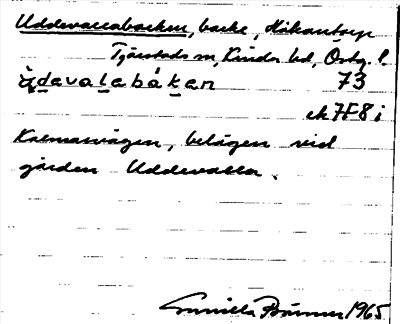 Uddevallabacken, backe, Håkantorp
Tjärstads sn, Kinds hd, Östg. l.
ùdavalabákan 73
ek 7F8i
Kalmarvägen, belägen vid
gården Uddevalla.
Gunilla Brunner 1965